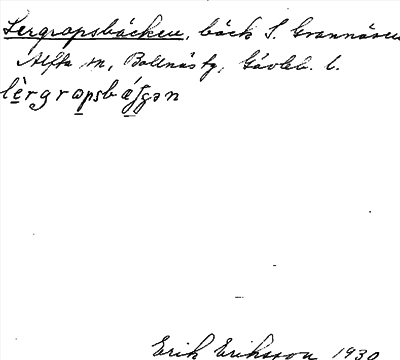 Lergropsbäcken, bäck S. Grannäsen
Alfta sn, Bollnäs tg, Gävleb. l.
lèrgropsbäʃɟən
Erik Eriksson 1930